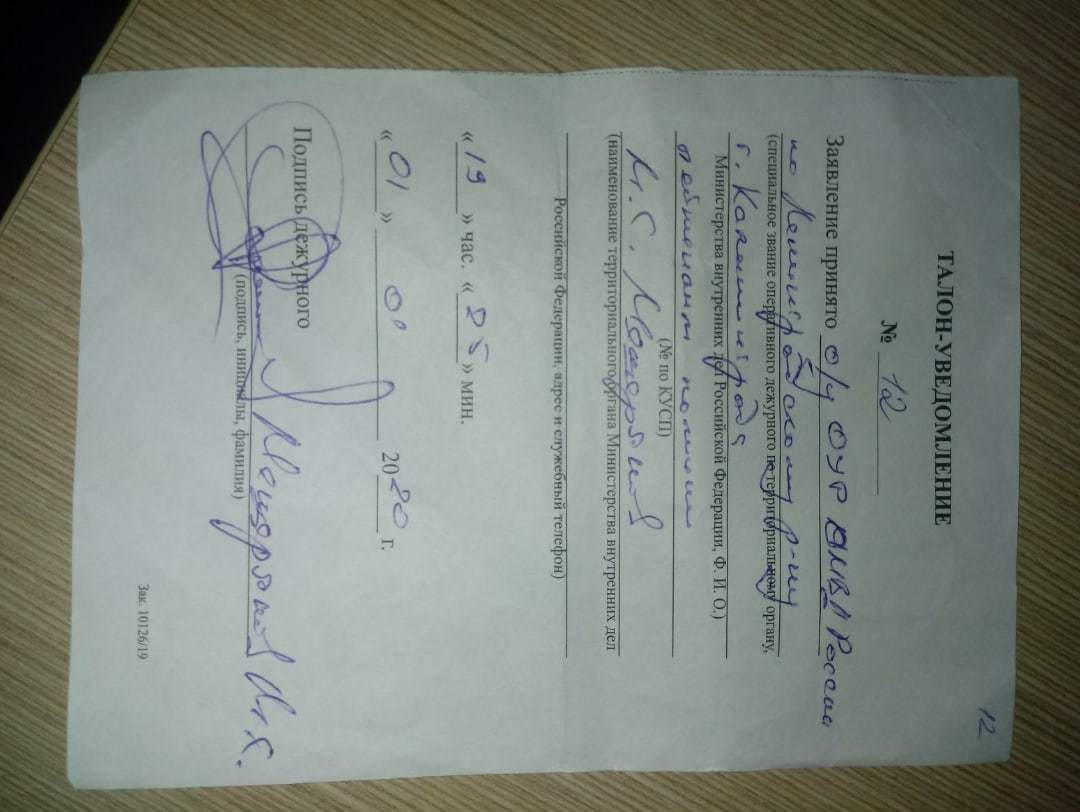 12
ТАЛОН-УВЕДОМЛЕНИЕ
№ 12
Заявление принято о/у ОУР ОМВД России
по Ленинградскому р-ну
(специальное звание оперативного дежурного по территориальному органу,
г. Калининграда
Министерства внутренних дел Российской Федерации, Ф. И. О.)
лейтенант полиции
(№ по КУСП)
Мещеряков
(наименование территориального органа Министерства внутренних дел
Российской Федерации, адрес и служебный телефон)
«19» час. «05» мин.
«01» 2020 г.
Подпись дежурного
Мещеряков
(подпись, инициалы, фамилия)
Зак. 10126/19